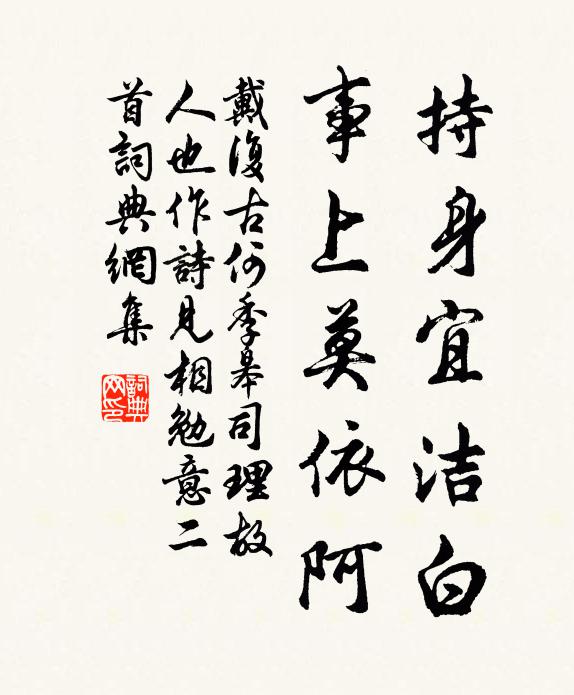 持身宜洁白
事上莫依阿
戴復古何季皋司理故
人也作詩見相勉意二
首詞典網集
詞典網印